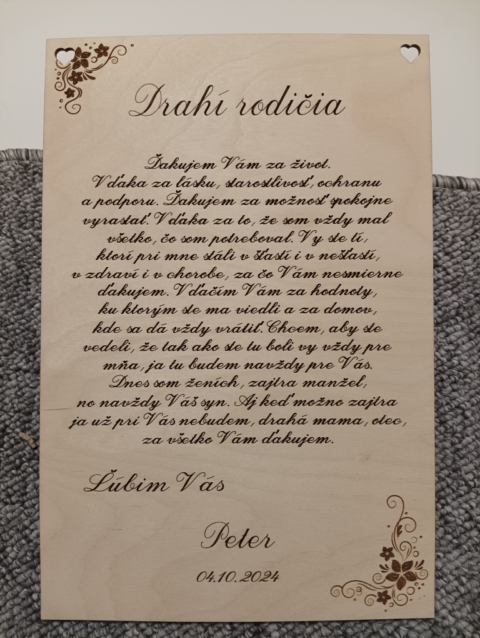 Drahí rodičia
Ďakujem Vám za život.
Vďaka za lásku, starostlivosť, ochranu
a podporu. Ďakujem za možnosť spokojne
vyrastať. Vďaka za to, že som vždy mal
všetko, čo som potreboval. Vy ste tí,
ktorí pri mne stáli v šťastí i v nešťastí,
v zdraví i v chorobe, za čo Vám nesmierne
ďakujem. Vďačím Vám za hodnoty,
ku ktorým ste ma viedli a za domov,
kde sa dá vždy vrátiť. Chcem, aby ste
vedeli, že tak ako ste tu boli vy vždy pre
mňa, ja tu budem navždy pre Vás.
Dnes som ženích, zajtra manžel,
no navždy Váš syn. Aj keď možno zajtra
ja už pri Vás nebudem, drahá mama, otec,
za všetko Vám ďakujem.
Ľúbim Vás
Peter
04.10.2024